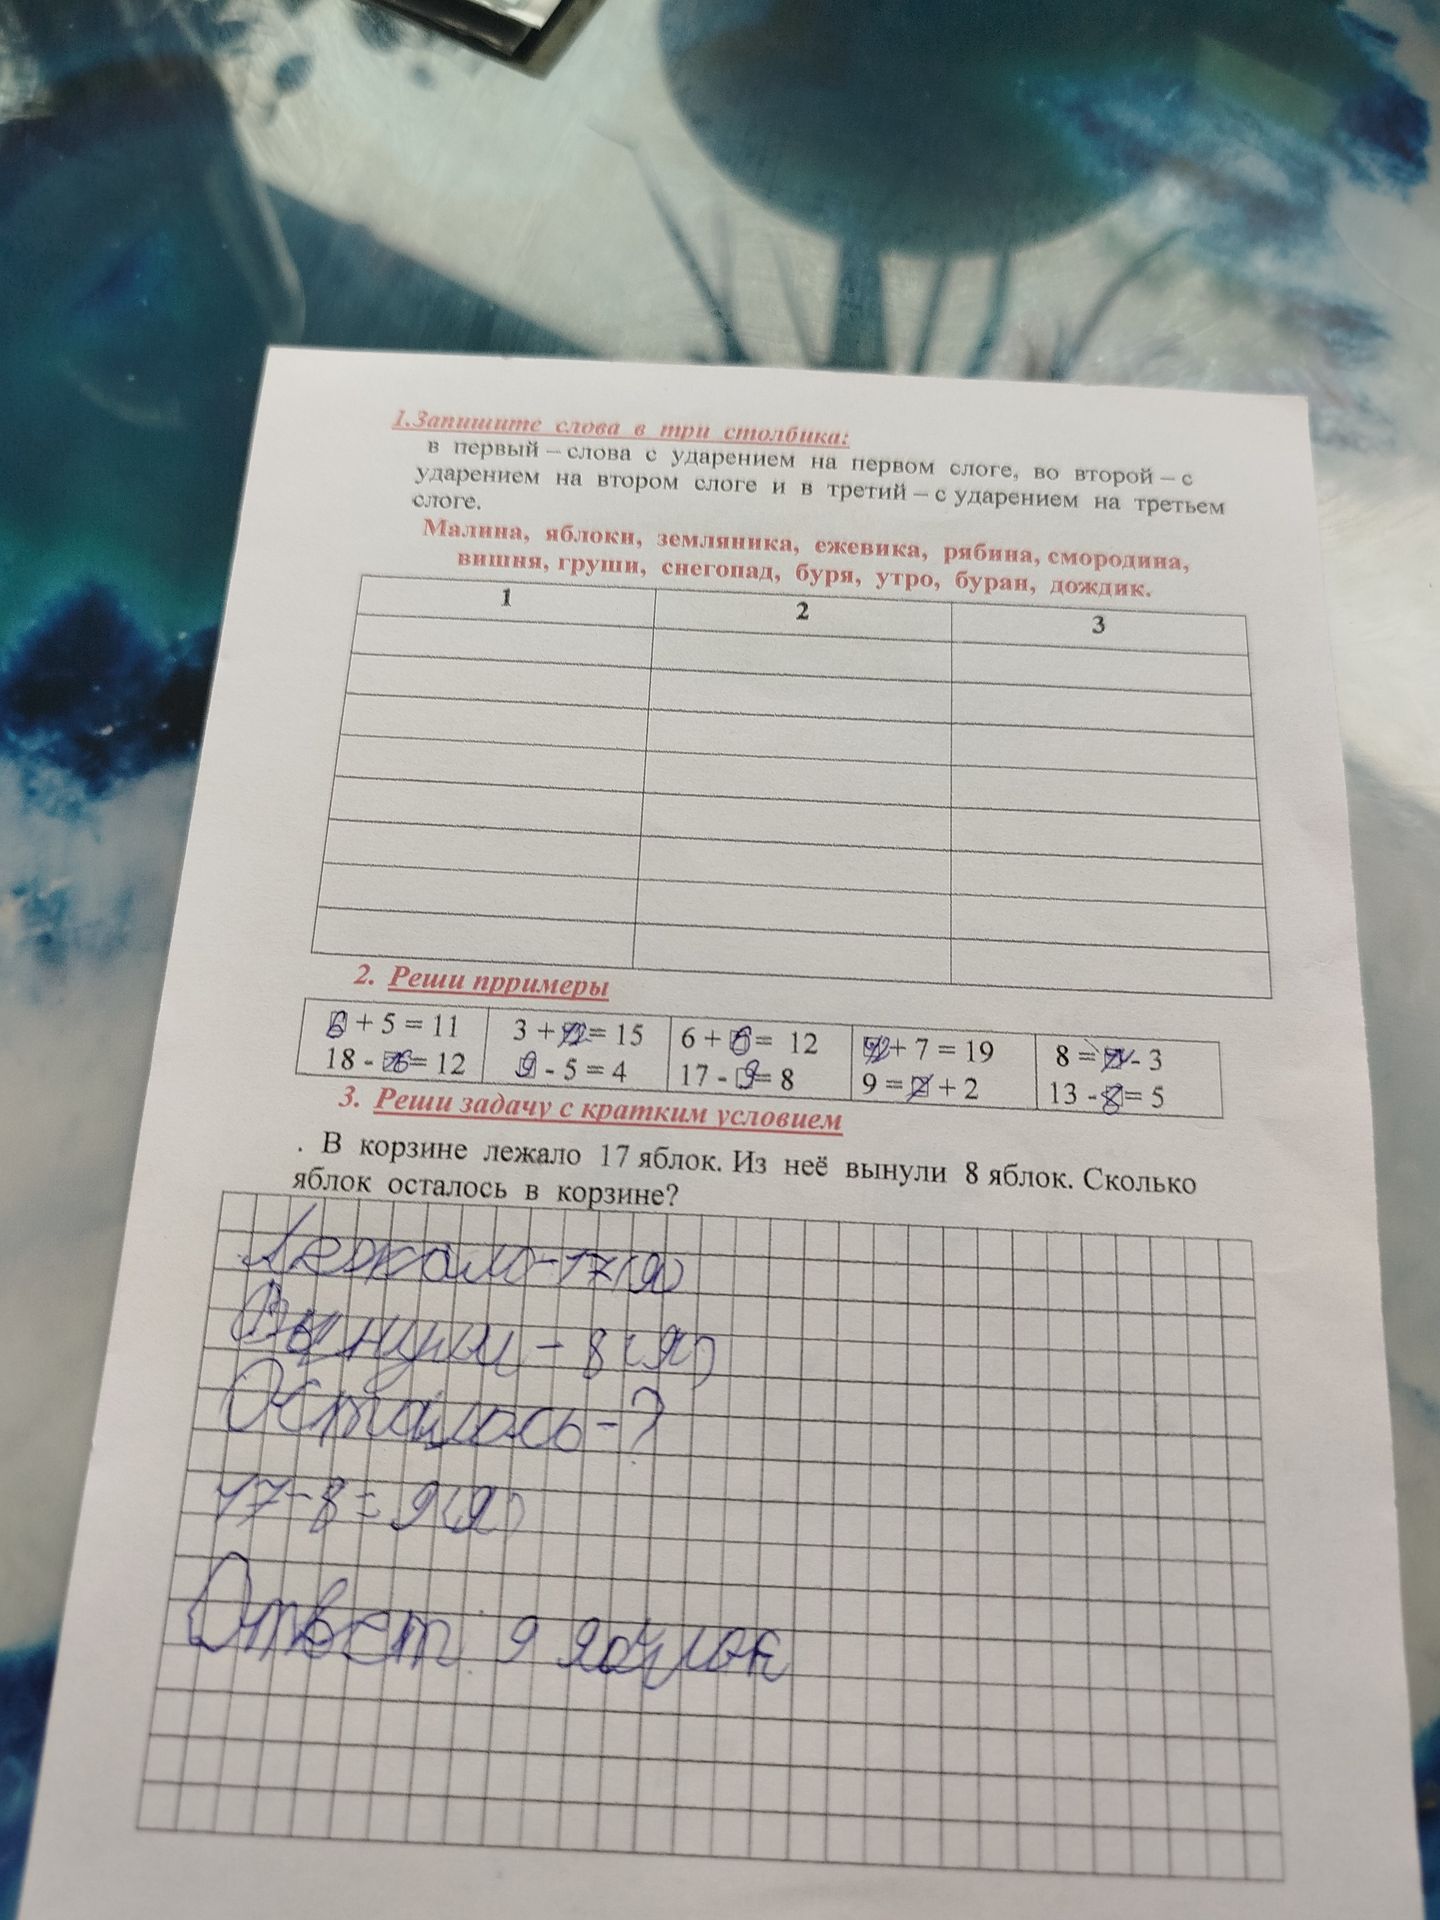 1.Запишите слова в три столбика:
в первый – слова с ударением на первом слоге, во второй – с
ударением на втором слоге и в третий – с ударением на третьем
слоге.
Малина, яблоки, земляника, ежевика, рябина, смородина,
вишня, груши, снегопад, буря, утро, буран, дождик.
1 2 3
2. Реши прримеры
6 + 5 = 11 3 + 12 = 15 6 + 6 = 12 12 + 7 = 19 8 = - 3
18 - = 12 9 - 5 = 4 17 - 9 = 8 9 = + 2 13 - 8 = 5
3. Реши задачу с кратким условием
. В корзине лежало 17 яблок. Из неё вынули 8 яблок. Сколько
яблок осталось в корзине?
Лежало - 17 (я)
Вынули - 8 (я)
Осталось - ?
17 - 8 = 9 (я)
Ответ 9